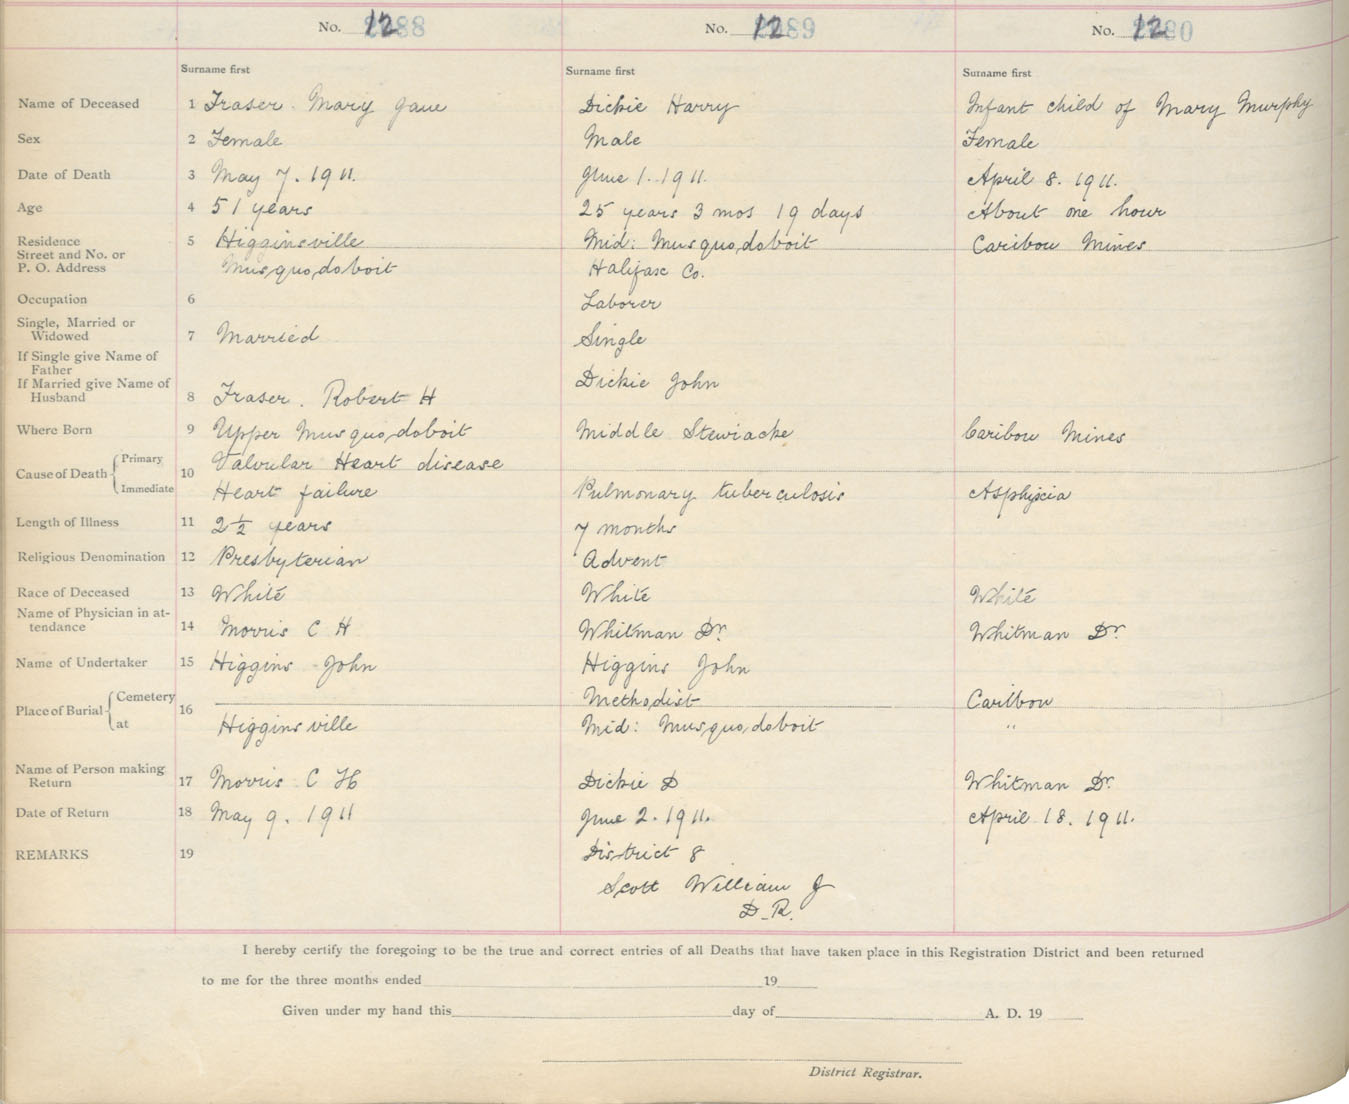 No. 1288 No. 1289 No. 1280
Surname first Surname first Surname first
Name of Deceased 1 Fraser. Mary Jane Dickie Harry Infant child of Mary Murphy
Sex 2 Female Male Female
Date of Death 3 May 7. 1911. June 1. 1911. April 8. 1911.
Age 4 51 years 25 years 3 mos 19 days About one hour
Residence 5 Higginsville Mid: Musquodoboit Caribou Mines
Street and No. or
P. O. Address Musquodoboit Halifax Co.
Occupation 6 Laborer
Single, Married or
Widowed 7 Married Single
If Single give Name of
Father
If Married give Name of Dickie John
Husband 8 Fraser. Robert H
Where Born 9 Upper Musquodoboit Middle Stewiacke Caribou Mines
Cause of Death Primary 10 Valvular Heart disease
Immediate Heart failure Pulmonary tuberculosis Asphyxia
Length of Illness 11 2½ years 7 months
Religious Denomination 12 Presbyterian Advent
Race of Deceased 13 White White White
Name of Physician in at-
tendance 14 Morris C H Whitman Dr. Whitman Dr.
Name of Undertaker 15 Higgins John Higgins John
Place of Burial Cemetery 16 Methodist Caribou
at Higginsville Mid: Musquodoboit "
Name of Person making
Return 17 Morris C H Dickie D Whitman Dr.
Date of Return 18 May 9. 1911 June 2. 1911. April 18. 1911.
REMARKS 19 District 8
Scott William J
D. R.
I hereby certify the foregoing to be the true and correct entries of all Deaths that have taken place in this Registration District and been returned
to me for the three months ended 19
Given under my hand this day of A. D. 19
District Registrar.